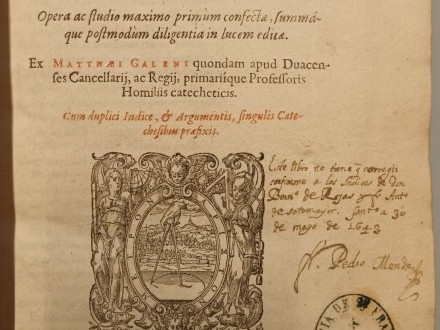 Opera ac studio maximo primùm confecta, summâ-
que postmodùm diligentia in lucem editæ.
Ex MATTHÆI GALENI quondam apud Duacen-
ses Cancellarij, ac Regij, primarijsque Professoris
Homiliis catecheticis.
Cum duplici Indice, & Argumentis, singulis Cate-
chesibus præfixis.
Este libro no tiene q corregir
conforme a los Indices de don
Bern.º de Rojas y don Anto
de sotomayor.
a 30
de mayo de 1643
Pedro